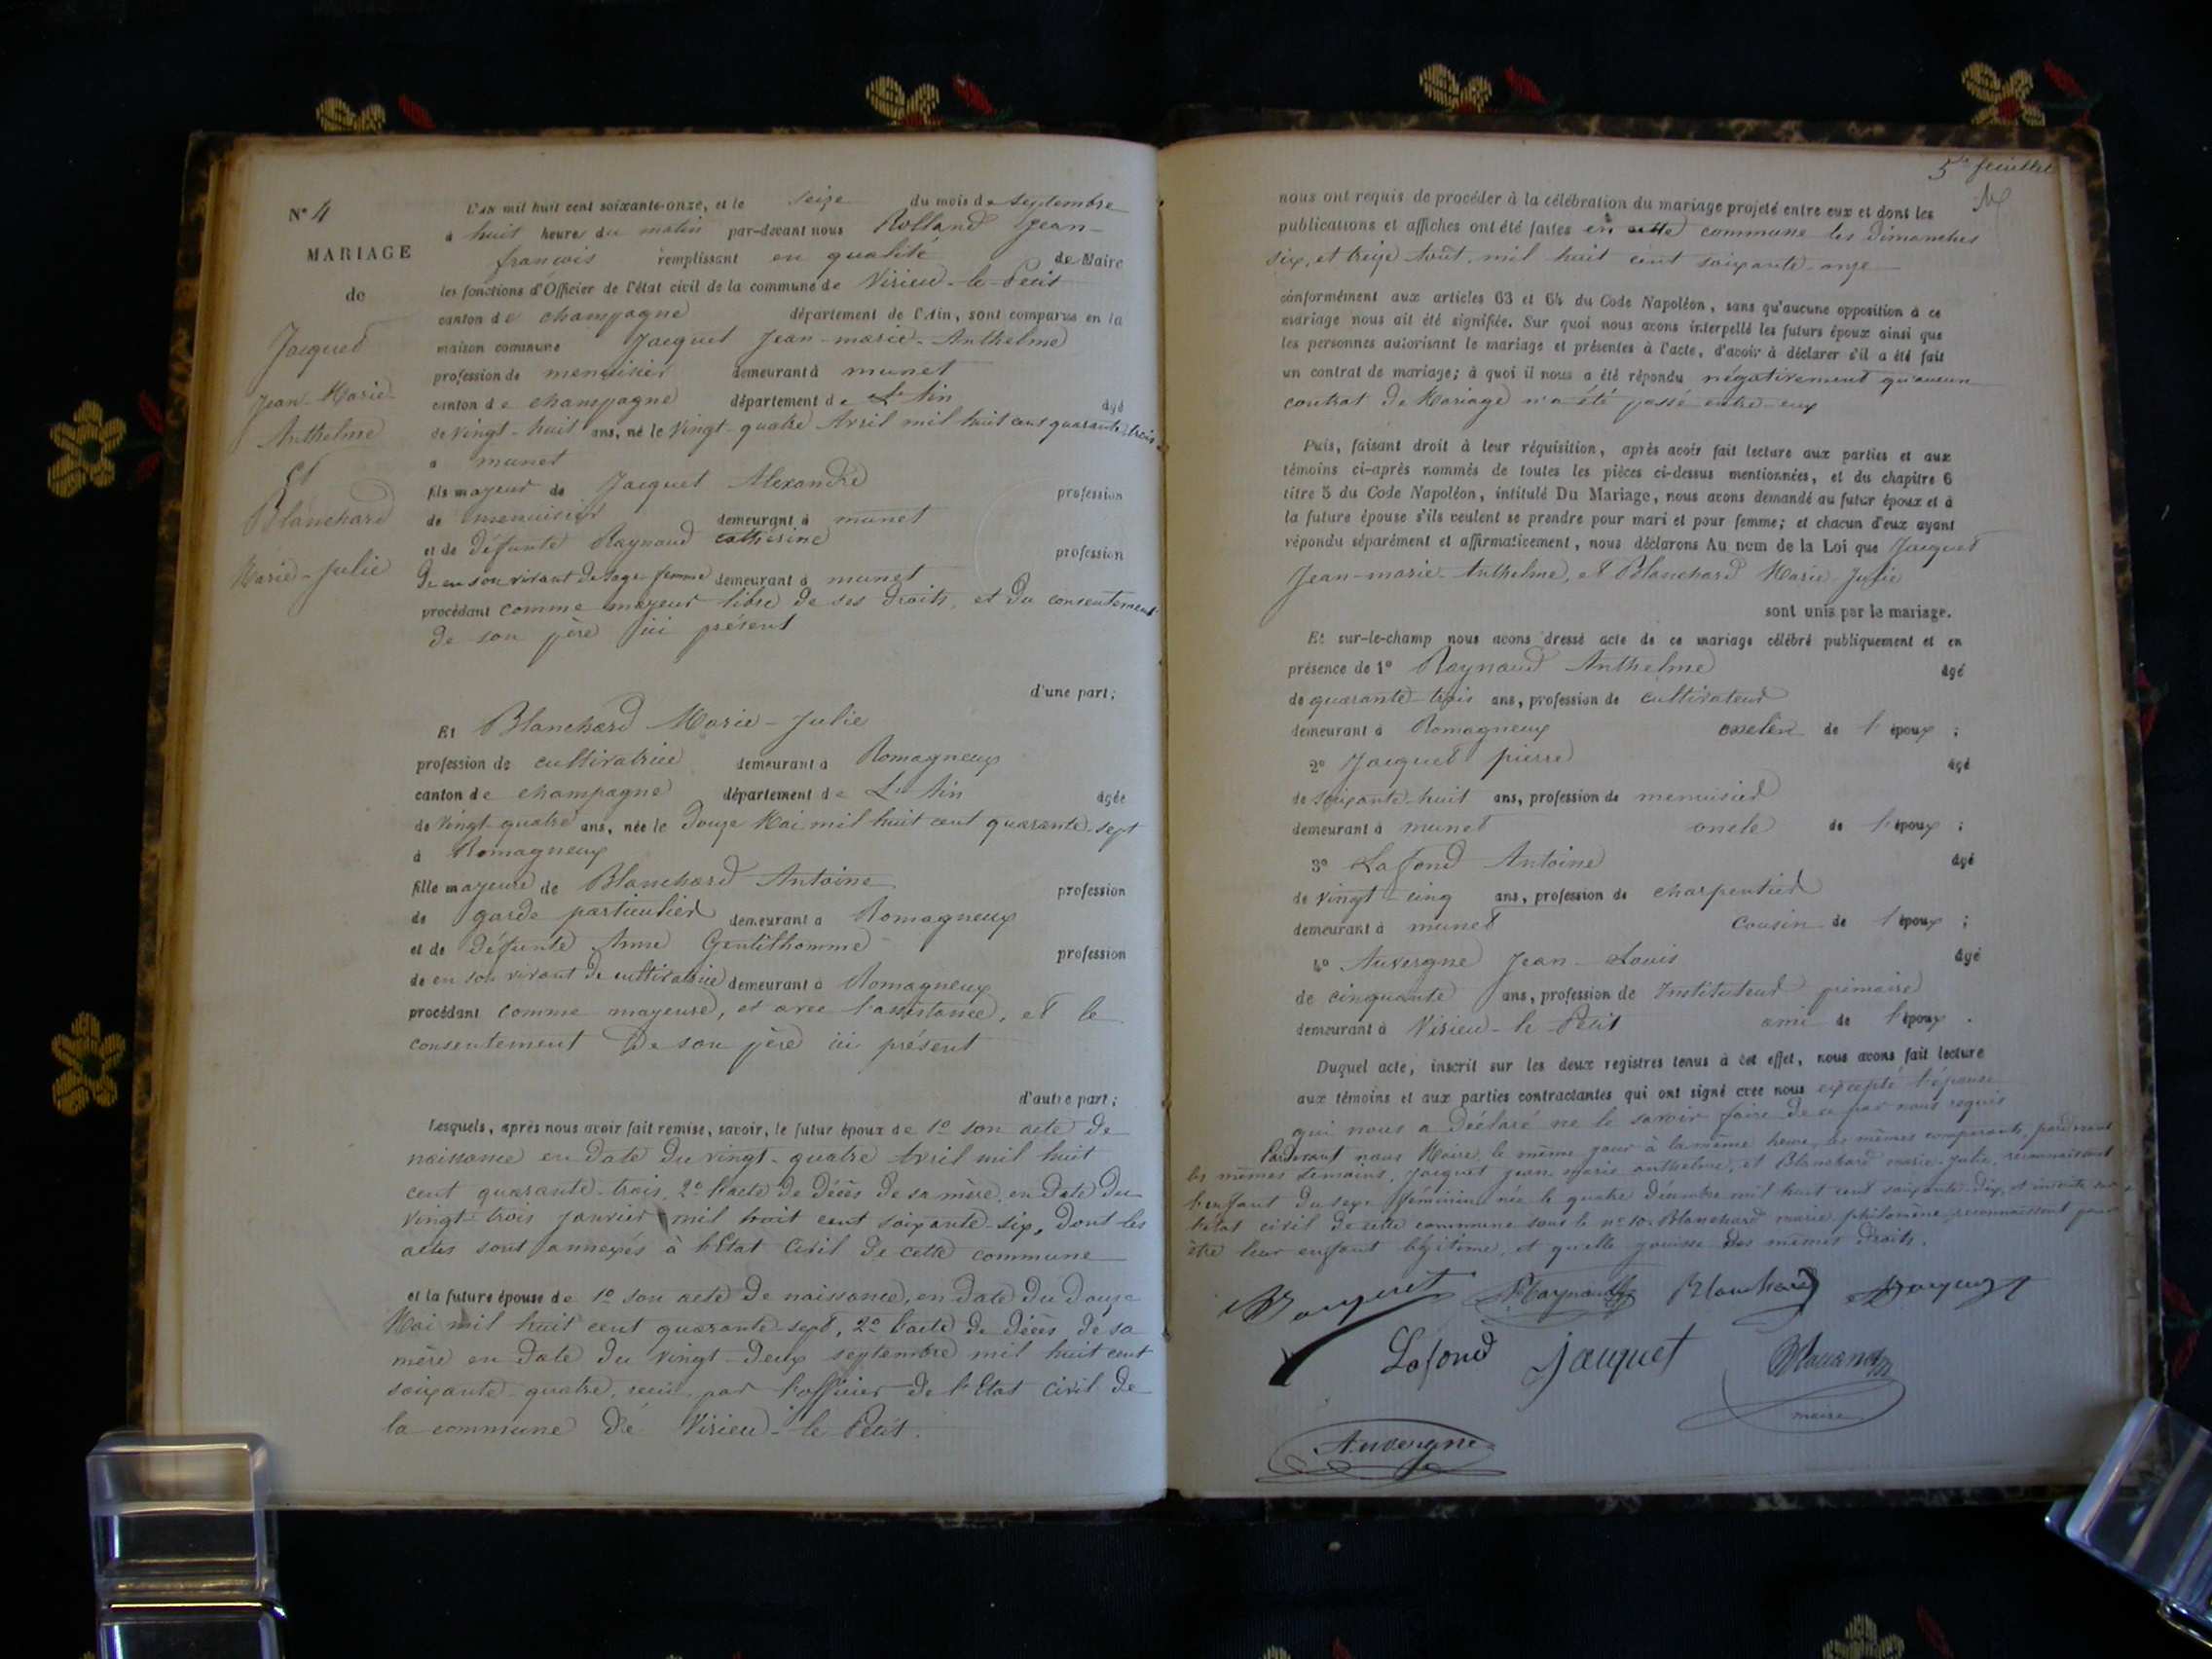 N° 4
MARIAGE
de
Jacquet
Jean-Marie-
Anthelme
et
Blanchard
Marie-Julie
L'AN mil huit cent soixante-onze, et le seize du mois de septembre
à huit heure du matin par-devant nous Rolland Jean-
francois remplissant en qualité de Maire
les fonctions d'Officier de l'état civil de la commune de Virieu-le-Petit
canton de champagne département de l'Ain, sont comparus en la
maison commune Jacquet Jean-marie-Anthelme
profession de menuisier demeurant à munet
canton de champagne département de L'Ain âgé
de vingt-huit ans, né le vingt-quatre Avril mil huit cent quarante-trois
à munet
fils majeur de Jacquet Alexandre profession
de menuisier demeurant à munet
et de défunte Raynaud catherine profession
de en son vivant de sage-femme demeurant à munet
procédant comme majeur libre de ses droits, et du consentement
de son père ici présent
d'une part;
Et Blanchard Marie-Julie
profession de cultivatrice demeurant à Romagneux
canton de champagne département de L'Ain âgée
de vingt-quatre ans, née le douze Mai mil huit cent quarante-sept
à Romagneux
fille majeure de Blanchard Antoine profession
de garde particulier demeurant à Romagneux
et de défunte Anne Gentilhomme profession
de en son vivant de cultivatrice demeurant à Romagneux
procédant comme mayeure, et avec l'assistance, et le
consentement De son père ici présent
d'autre part;
Lesquels, après nous avoir fait remise, savoir, le futur époux de 1° son acte de
naissance en date du vingt-quatre Avril mil huit
cent quarante-trois, 2° l'acte de décès de sa mère, en date du
vingt-trois janvier mil huit cent soixante-six, dont les
actes sont annexés à l'Etat Civil de cette commune
et la future épouse de 1° son acte de naissance, en date du douze
Mai mil huit cent quarante-sept, 2° l'acte de décès de sa
mère en date du vingt-deux septembre mil huit cent
soixante-quatre, reçu par l'officier de l'Etat civil de
la commune de Virieu-le-Petit.
5e feuillet
nous ont requis de procéder à la célébration du mariage projeté entre eux et dont les
publications et affiches ont été faites en cette commune les dimanches
six, et treize Août, mil huit cent soixante-onze
conformément aux articles 63 et 64 du Code Napoléon, sans qu'aucune opposition à ce
mariage nous ait été signifiée. Sur quoi nous avons interpellé les futurs époux ainsi que
les personnes autorisant le mariage et présentes à l'acte, d'avoir à déclarer s'il a été fait
un contrat de mariage; à quoi il nous a été répondu négativement qu'aucun
contrat de Mariage n'a été passé entre-eux
Puis, faisant droit à leur réquisition, après avoir fait lecture aux parties et aux
témoins ci-après nommés de toutes les pièces ci-dessus mentionnées, et du chapitre 6
titre 5 du Code Napoléon, intitulé Du Mariage, nous avons demandé au futur époux et à
la future épouse s'ils veulent se prendre pour mari et pour femme; et chacun d'eux ayant
répondu séparément et affirmativement, nous déclarons Au nom de la Loi que Jacquet
Jean-marie-Anthelme, et Blanchard Marie Julie
sont unis par le mariage.
Et sur-le-champ nous avons dressé acte de ce mariage célébré publiquement et en
présence de 1° Raynaud Anthelme âgé
de quarante-trois ans, profession de cultivateur
demeurant à Romagneux de l'époux;
2° Jacquet pierre âgé
de soixante-huit ans, profession de menuisier
demeurant à munet oncle de l'époux;
3° Lafond Antoine âgé
de vingt-cinq ans, profession de charpentier
demeurant à munet cousin de l'époux;
4° Auvergne Jean-Louis âgé
de cinquante ans, profession de Instituteur primaire
demeurant à Virieu-le-Petit ami de l'époux.
Duquel acte, inscrit sur les deux registres tenus à cet effet, nous avons fait lecture
aux témoins et aux parties contractantes qui ont signé avec nous excepté l'épouse
qui nous a déclaré ne le savoir faire de ce par nous requis
Pardevant nous Maire, le même jour à la même heure, les mêmes comparants, pardevant
les mêmes témoins, Jacquet jean marie anthelme, et Blanchard marie-Julie, reconnaissent
l'enfant du sexe féminin née le quatre décembre mil huit cent soixante-dix, et inscrite sur
l'état civil de cette commune sous le n° 10. Blanchard marie philomène, reconnaissent pour
être leur enfant légitime, et qu'elle jouisse des mêmes droits.
Jacquet Raynaud Blanchard Jacquet
Lafond Jacquet Rolland
maire
Auvergne